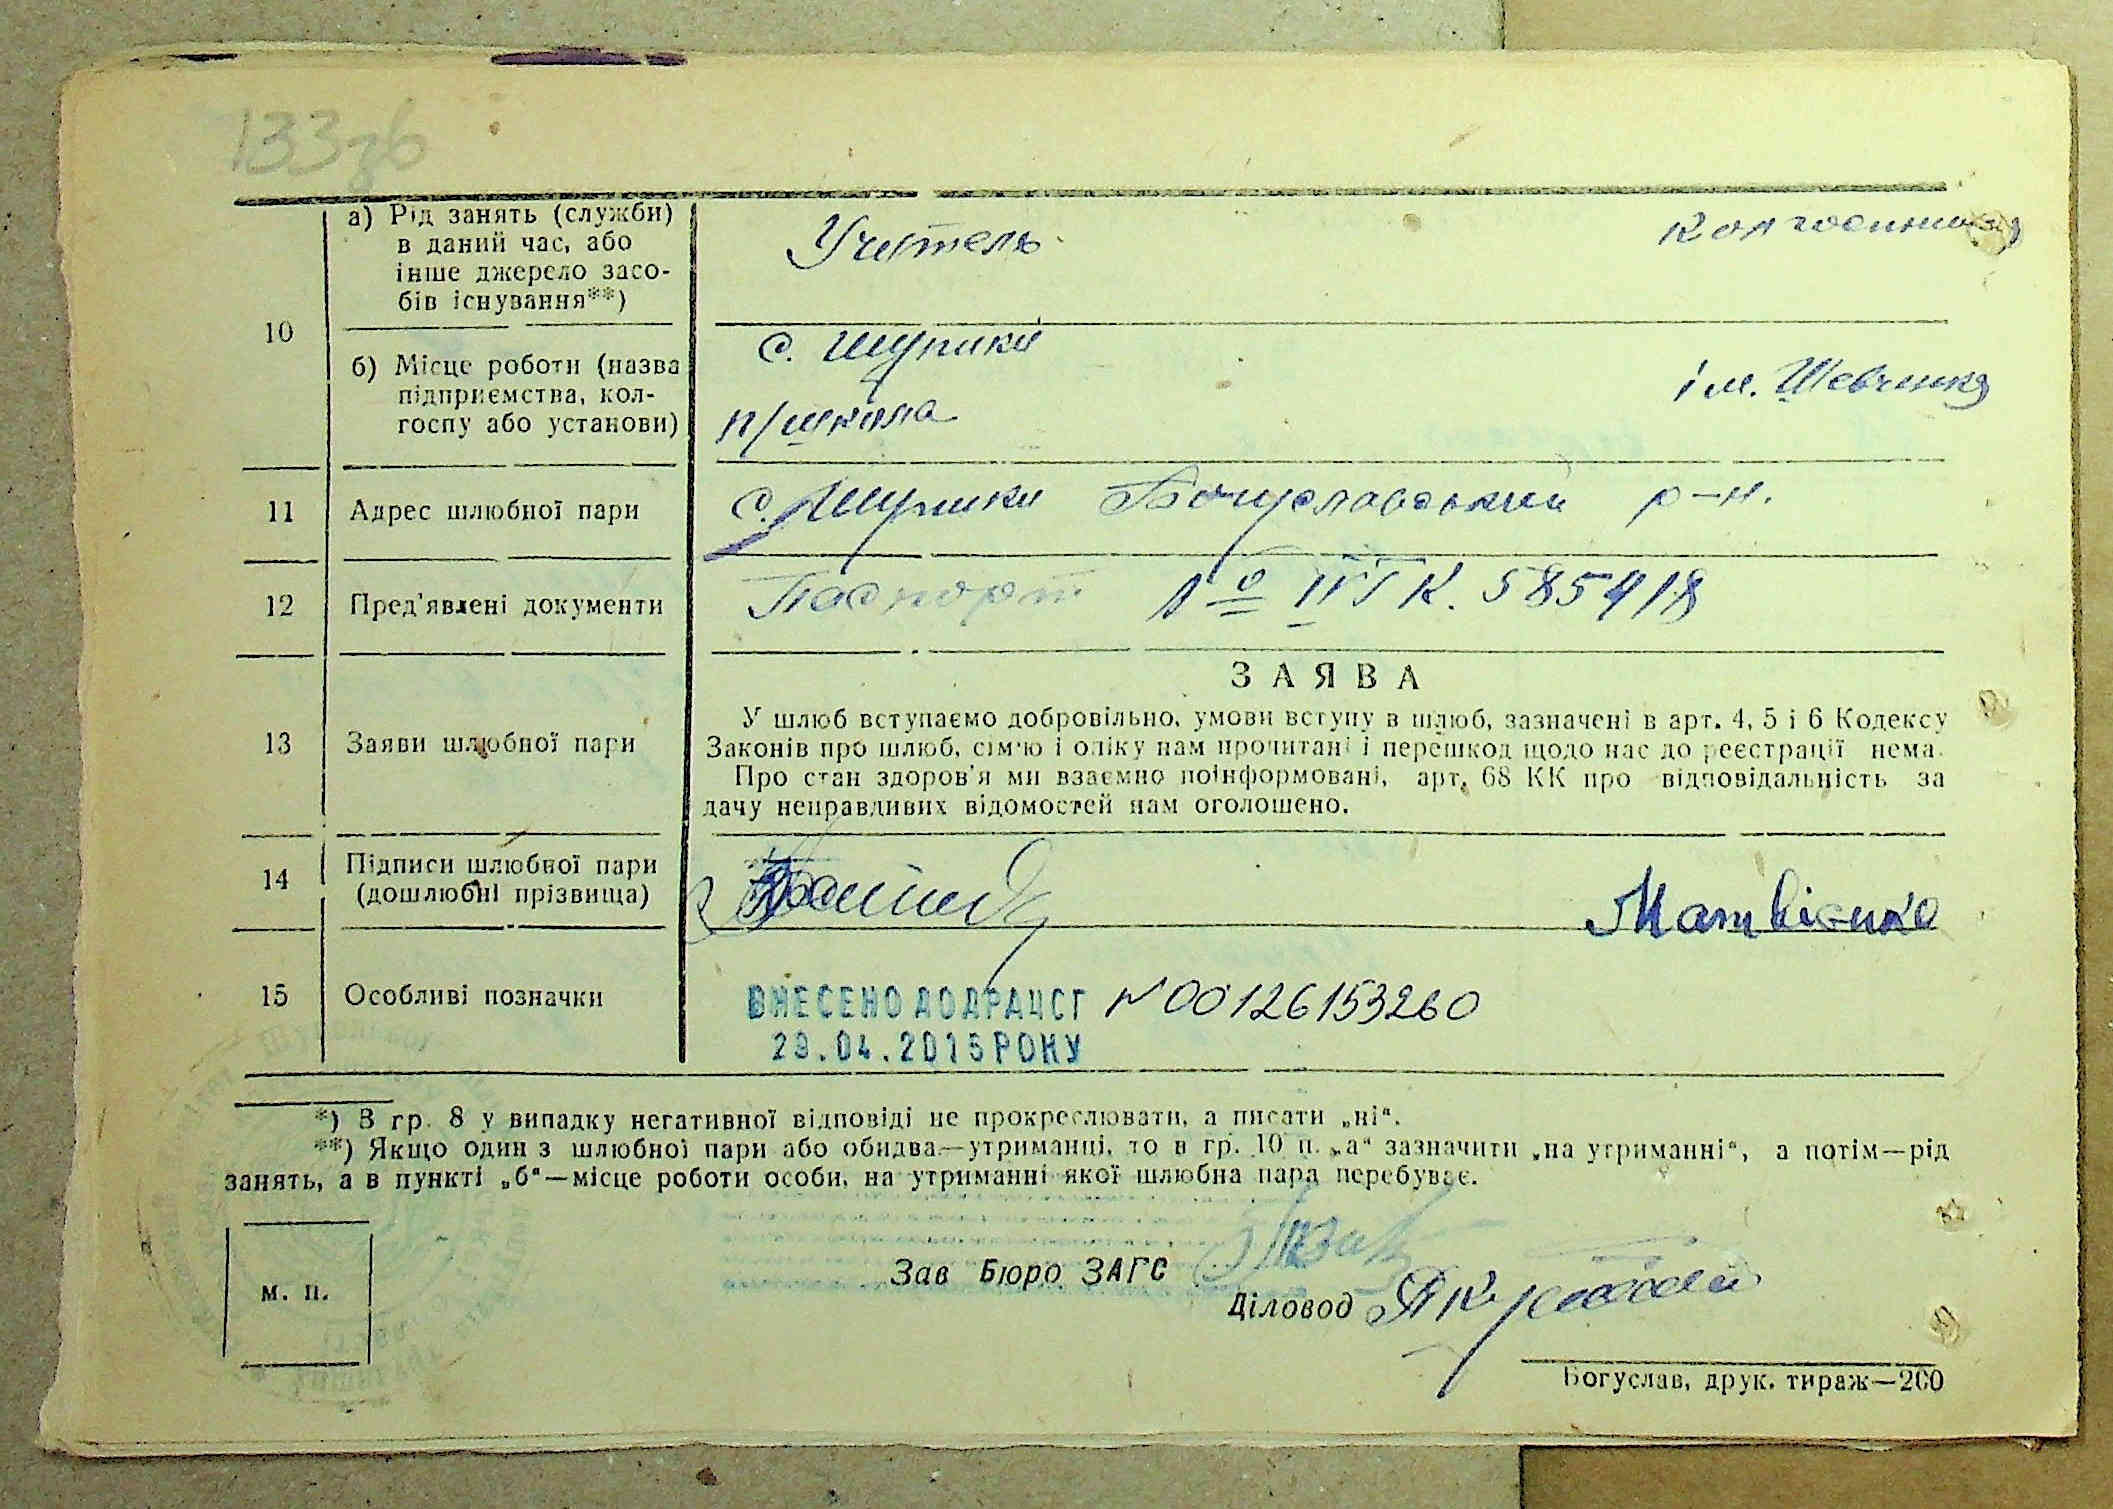 133зв
а) Рід занять (служби)
в даний час, або
інше джерело засо-
бів існування**)
Учитель
колгоспниця
10
б) Місце роботи (назва
підприємства, кол-
госпу або установи)
с. Щупики
п/школа
ім. Шевченка
11 Адрес шлюбної пари с. Щупики Богуславський р-н.
12 Пред'явлені документи Паспорт № 585418
ЗАЯВА
13 Заяви шлюбної пари
У шлюб вступаємо добровільно, умови вступу в шлюб, зазначені в арт. 4, 5 і 6 Кодексу
Законів про шлюб, сім'ю і опіку нам прочитані і перешкод щодо нас до реєстрації нема.
Про стан здоров'я ми взаємно поінформовані, арт. 68 КК про відповідальність за
дачу неправдивих відомостей нам оголошено.
14 Підписи шлюбної пари
(дошлюбні прізвища)
Матвієнко
15 Особливі позначки
ВНЕСЕНО ДО ДРАЦСГ N 00126153260
29.04.2015 РОКУ
*) В гр. 8 у випадку негативної відповіді не прокреслювати, а писати „ні“.
**) Якщо один з шлюбної пари або обидва—утриманці, то в гр. 10 п. „а“ зазначити „на утриманні“, а потім—рід
занять, а в пункті „б“—місце роботи особи, на утриманні якої шлюбна пара перебуває.
м. п.
Зав Бюро ЗАГС
Діловод
Богуслав, друк. тираж—200